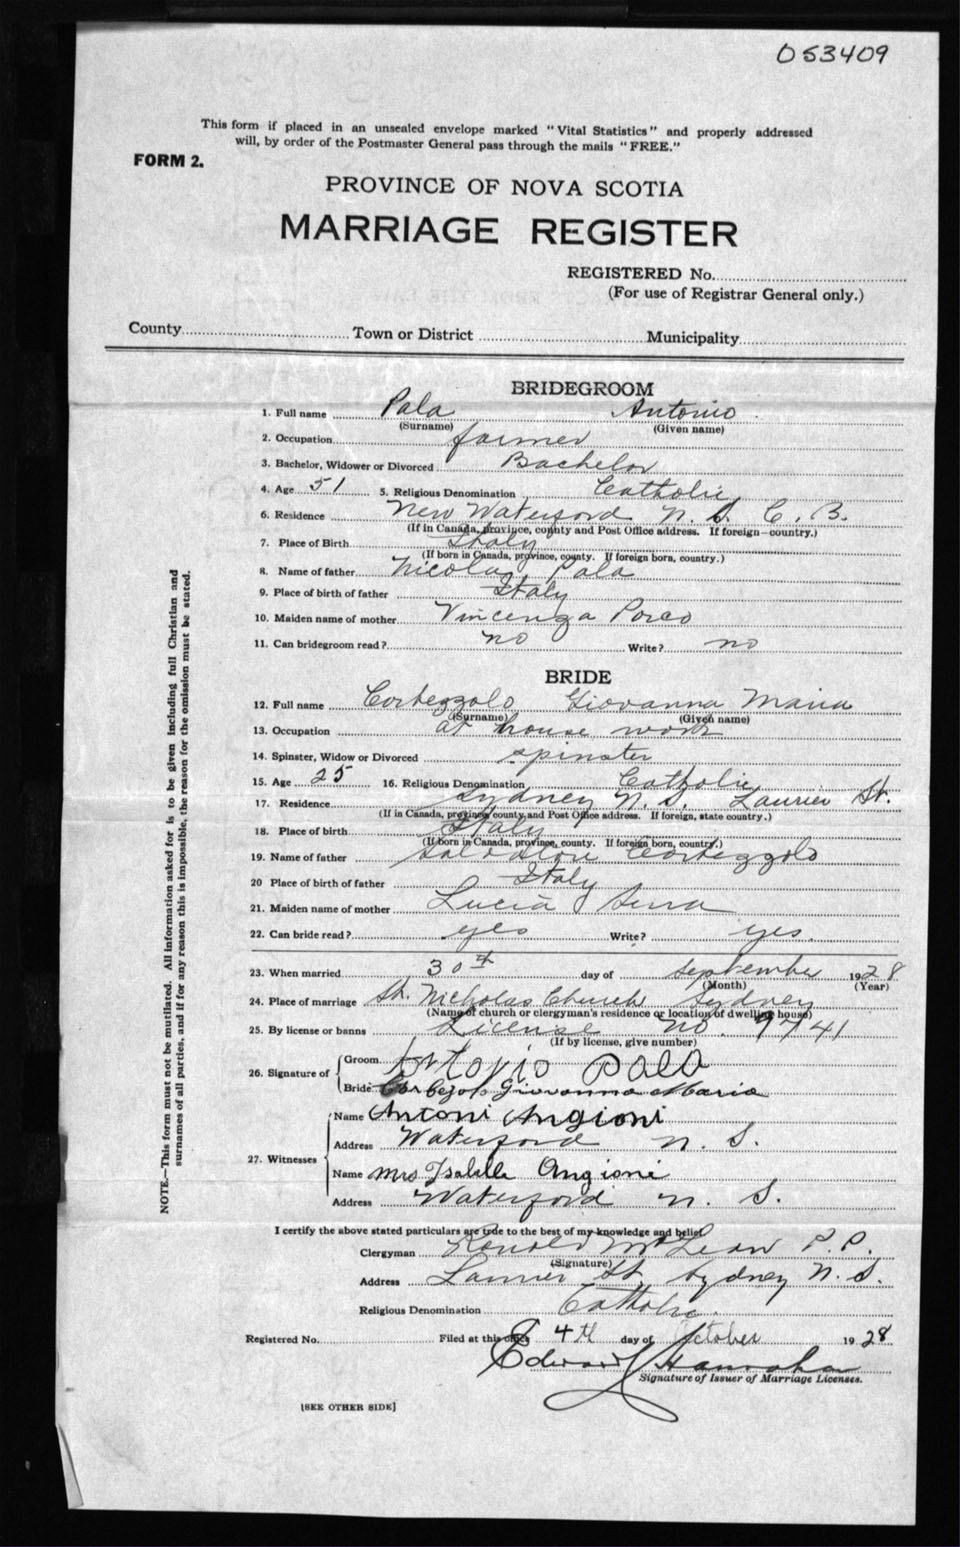 053409
This form if placed in an unsealed envelope marked "Vital Statistics" and properly addressed
will, by order of the Postmaster General pass through the mails "FREE."
FORM 2.
PROVINCE OF NOVA SCOTIA
MARRIAGE REGISTER
REGISTERED No.
(For use of Registrar General only.)
County Town or District Municipality
BRIDEGROOM
1. Full name Pala Antonio
(Surname) (Given name)
2. Occupation farmer
3. Bachelor, Widower or Divorced Bachelor
4. Age 51 5. Religious Denomination Catholic
6. Residence New Waterford N. S. C. B.
(If in Canada, province, county and Post Office address. If foreign—country.)
7. Place of Birth Italy
(If born in Canada, province, county. If foreign born, country.)
8. Name of father Nicolas Pala
9. Place of birth of father Italy
10. Maiden name of mother Vincenza Porco
11. Can bridegroom read? no Write? no
BRIDE
12. Full name Corbezzolo Giovanna Maria
(Surname) (Given name)
13. Occupation at house work
14. Spinster, Widow or Divorced spinster
15. Age 25 16. Religious Denomination Catholic
17. Residence Sydney N. S. Laurier St.
(If in Canada, province, county and Post Office address. If foreign, state country.)
18. Place of birth Italy
(If born in Canada, province, county. If foreign born, country.)
19. Name of father Corbezzolo
20 Place of birth of father Italy
21. Maiden name of mother Lucia Serra
22. Can bride read? yes Write? yes.
23. When married 30th day of September 1928
(Month) (Year)
24. Place of marriage St. Nicholas Church Sydney
(Name of church or clergyman's residence or location of dwelling house)
25. By license or banns License no. 9741
(If by license, give number)
26. Signature of
Groom Antonio Pala
Bride Giovanna Maria
27. Witnesses
Name Antoni Angioni
Address Waterford N. S.
Name Mrs Isabelle Angioni
Address Waterford N. S.
I certify the above stated particulars are true to the best of my knowledge and belief
Clergyman Ronald McLean P. P.
(Signature)
Address Laurier St. Sydney N. S.
Religious Denomination Catholic.
Registered No. Filed at this office 4th day of October 1928
Edward
Signature of Issuer of Marriage Licenses.
[SEE OTHER SIDE]
NOTE.—This form must not be mutilated. All information asked for is to be given including full Christian and
surnames of all parties, and if for any reason this is impossible, the reason for the omission must be stated.